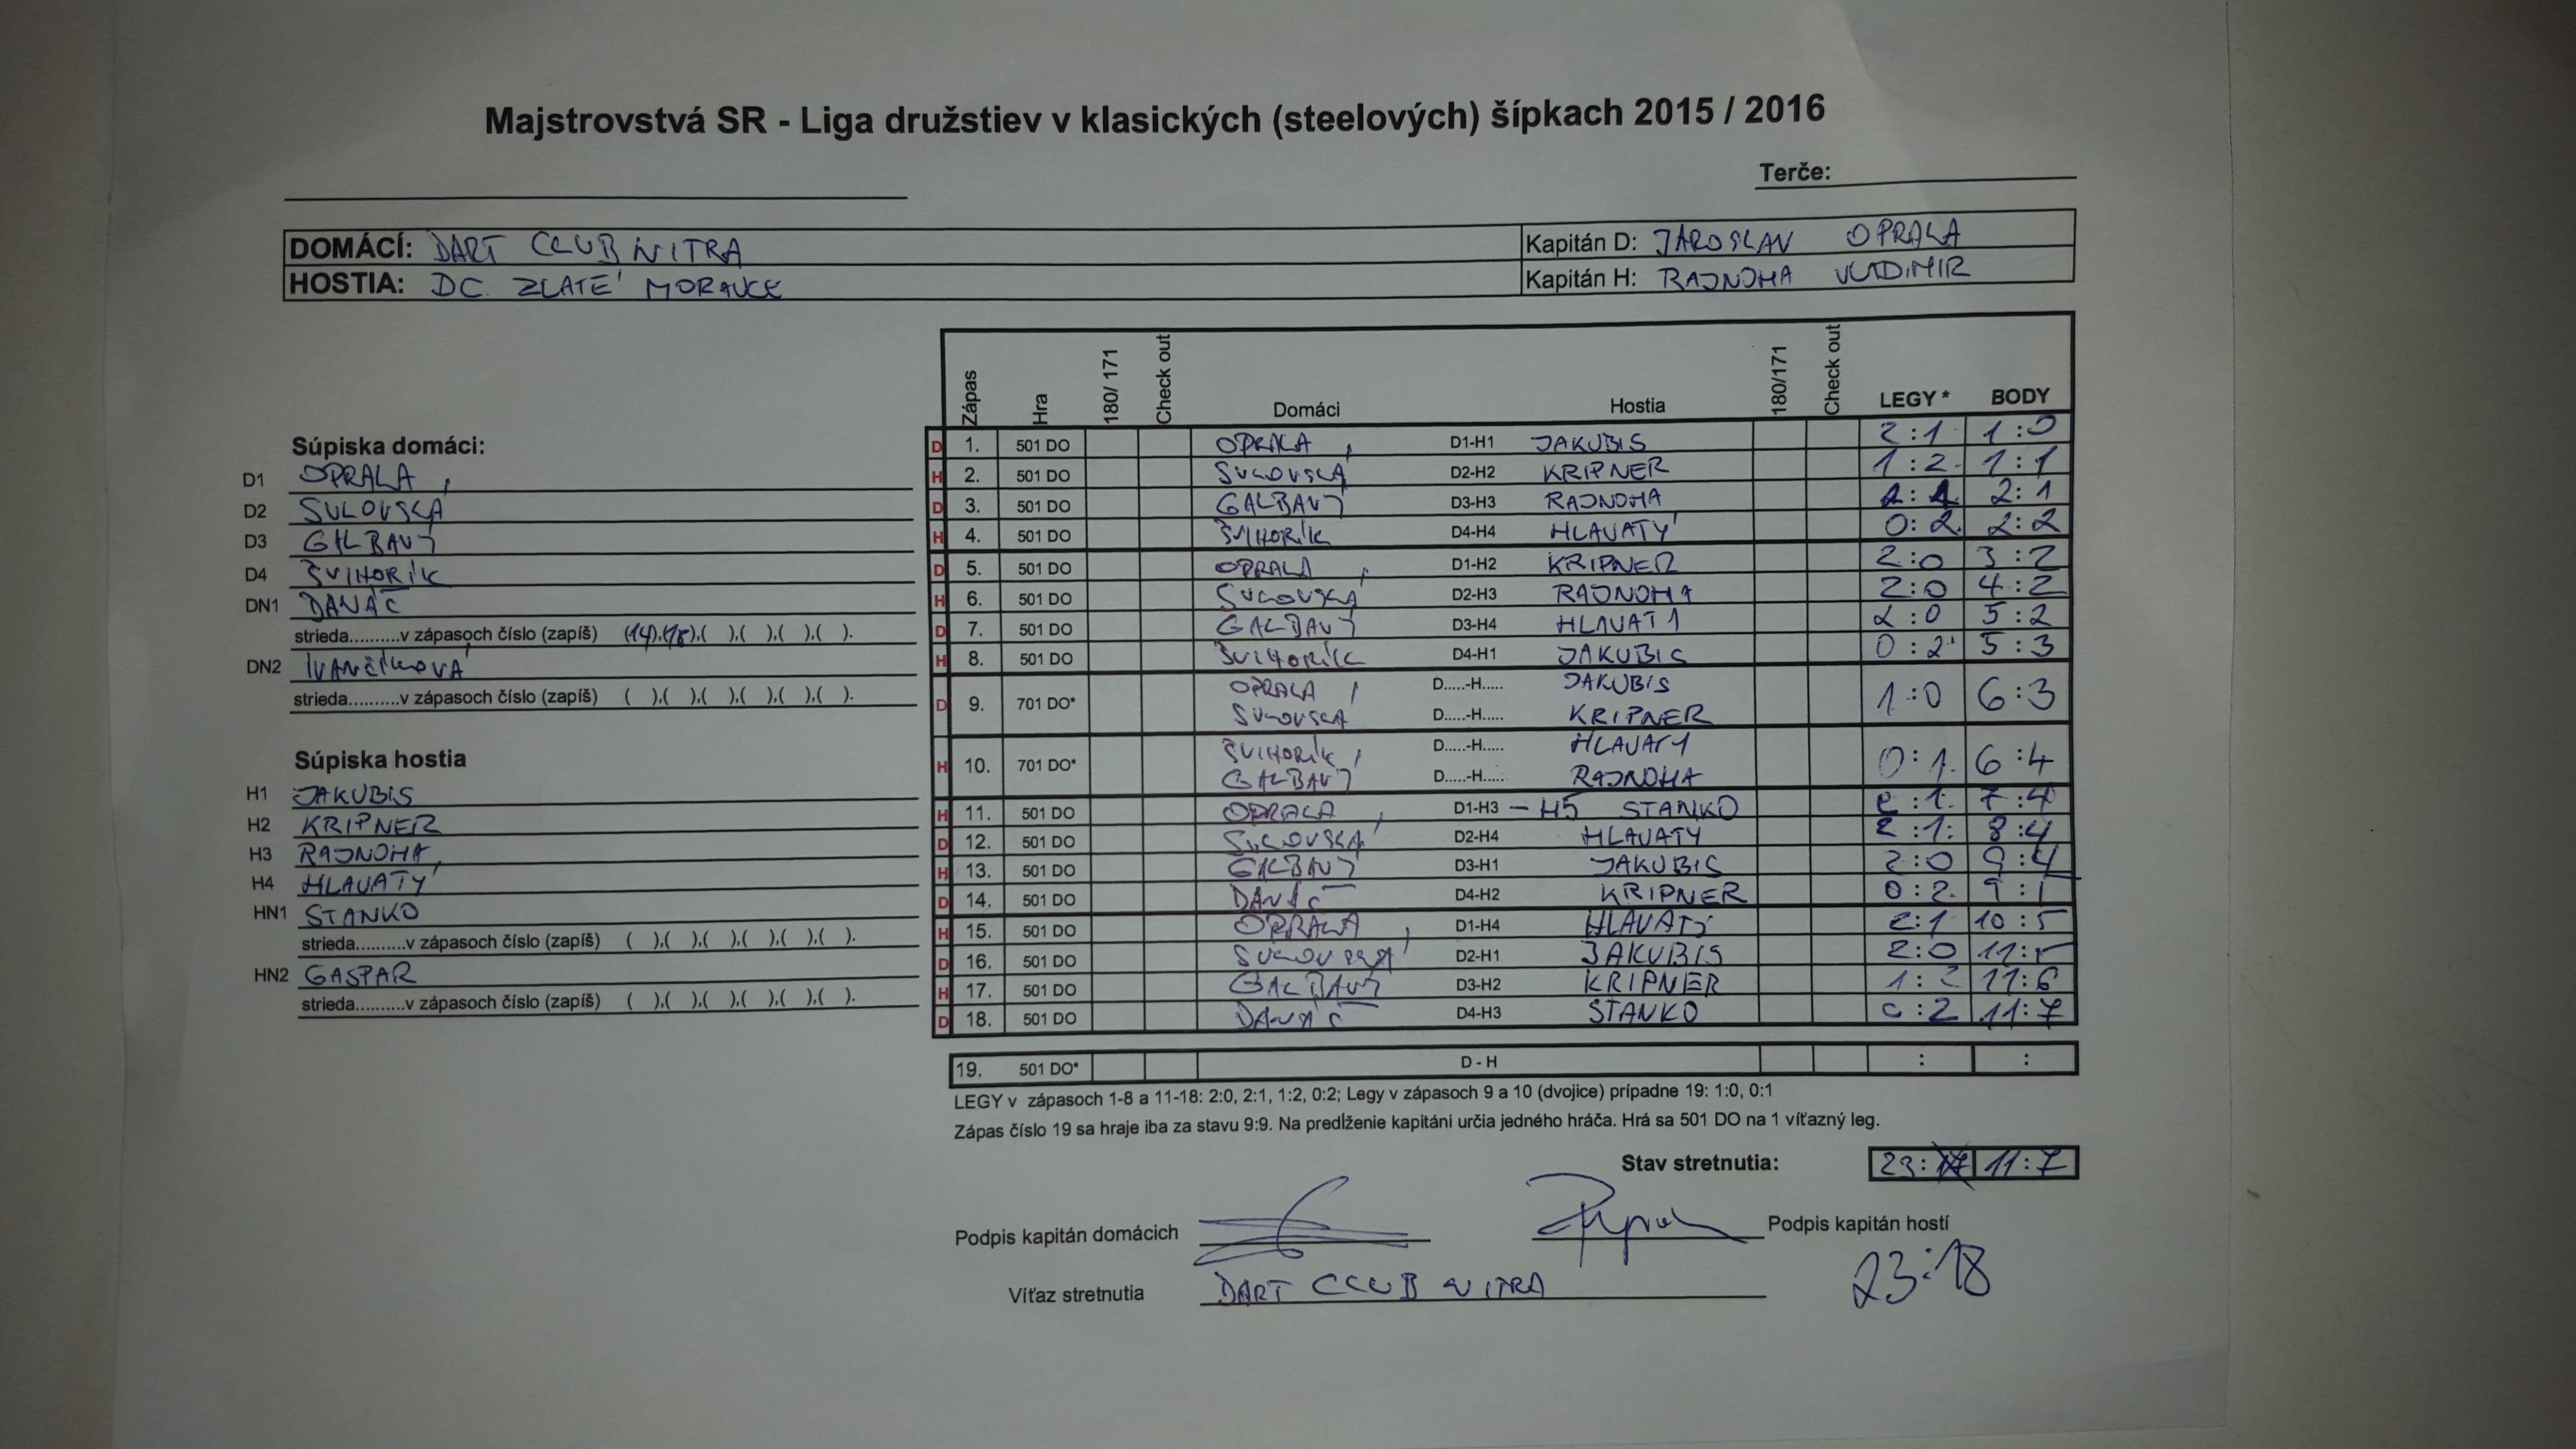 Majstrovstvá SR - Liga družstiev v klasických (steelových) šípkach 2015 / 2016
Terče:
DOMÁCÍ: DART CLUB NITRA Kapitán D: JAROSLAV OPRALA
HOSTIA: DC ZLATÉ MORAVCE Kapitán H: RAJNOHA VLADIMIR
Súpiska domáci:
D1 OPRALA
D2 SULOVSKÁ
D3 GALBAVÝ
D4 ŠVIHORÍK
DN1 DANÁČ
strieda..........v zápasoch číslo (zapíš) (14),(18),( ),( ),( ),( ).
DN2 IVANČÍKOVÁ
strieda..........v zápasoch číslo (zapíš) ( ),( ),( ),( ),( ),( ).
Súpiska hostia
H1 JAKUBIS
H2 KRIPNER
H3 RAJNOHA
H4 HLAVATÝ
HN1 STANKO
strieda..........v zápasoch číslo (zapíš) ( ),( ),( ),( ),( ),( ).
HN2 GASPAR
strieda..........v zápasoch číslo (zapíš) ( ),( ),( ),( ),( ),( ).
Zápas Hra 180/ 171 Check out Domáci Hostia 180/171 Check out LEGY * BODY
D 1. 501 DO OPRALA D1-H1 JAKUBIS 2:1 1:0
H 2. 501 DO SULOVSKÁ D2-H2 KRIPNER 1:2 1:1
D 3. 501 DO GALBAVÝ D3-H3 RAJNOHA 2:1
H 4. 501 DO ŠVIHORÍK D4-H4 HLAVATÝ 0:2 2:2
D 5. 501 DO OPRALA D1-H2 KRIPNER 2:0 3:2
H 6. 501 DO SULOVSKÁ D2-H3 RAJNOHA 2:0 4:2
D 7. 501 DO GALBAVÝ D3-H4 HLAVATÝ 2:0 5:2
H 8. 501 DO ŠVIHORÍK D4-H1 JAKUBIS 0:2 5:3
D 9. 701 DO* OPRALA D.....-H..... JAKUBIS 1:0 6:3
SULOVSKÁ D.....-H..... KRIPNER
H 10. 701 DO* ŠVIHORÍK D.....-H..... HLAVATÝ 0:1 6:4
GALBAVÝ D.....-H..... RAJNOHA
H 11. 501 DO OPRALA D1-H3 - H5 STANKO 2:1 7:4
D 12. 501 DO SULOVSKÁ D2-H4 HLAVATY 2:1 8:4
H 13. 501 DO GALBAVÝ D3-H1 JAKUBIS 2:0 9:4
D 14. 501 DO DANÁČ D4-H2 KRIPNER 0:2
H 15. 501 DO OPRALA D1-H4 HLAVATÝ 2:1 10:5
D 16. 501 DO SULOVSKÁ D2-H1 JAKUBIS 2:0 11:5
H 17. 501 DO GALBAVÝ D3-H2 KRIPNER 1:2 11:6
D 18. 501 DO DANÁČ D4-H3 STANKO 0:2 11:7
19. 501 DO* D - H : :
LEGY v zápasoch 1-8 a 11-18: 2:0, 2:1, 1:2, 0:2; Legy v zápasoch 9 a 10 (dvojice) prípadne 19: 1:0, 0:1
Zápas číslo 19 sa hraje iba za stavu 9:9. Na predĺženie kapitáni určia jedného hráča. Hrá sa 501 DO na 1 víťazný leg.
Stav stretnutia: 23: 11:7
Podpis kapitán domácich Podpis kapitán hostí
Víťaz stretnutia DART CLUB NITRA 23:18